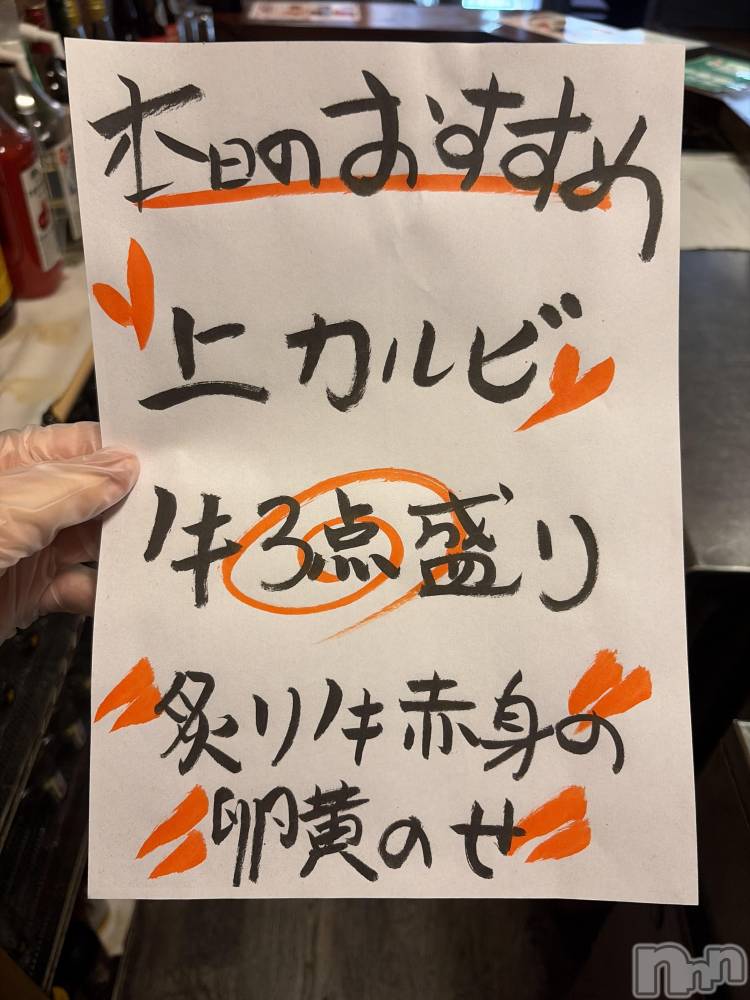 本日のおすすめ
上カルビ
牛3点盛り
炙り牛赤身の
卵黄のせ
nnn